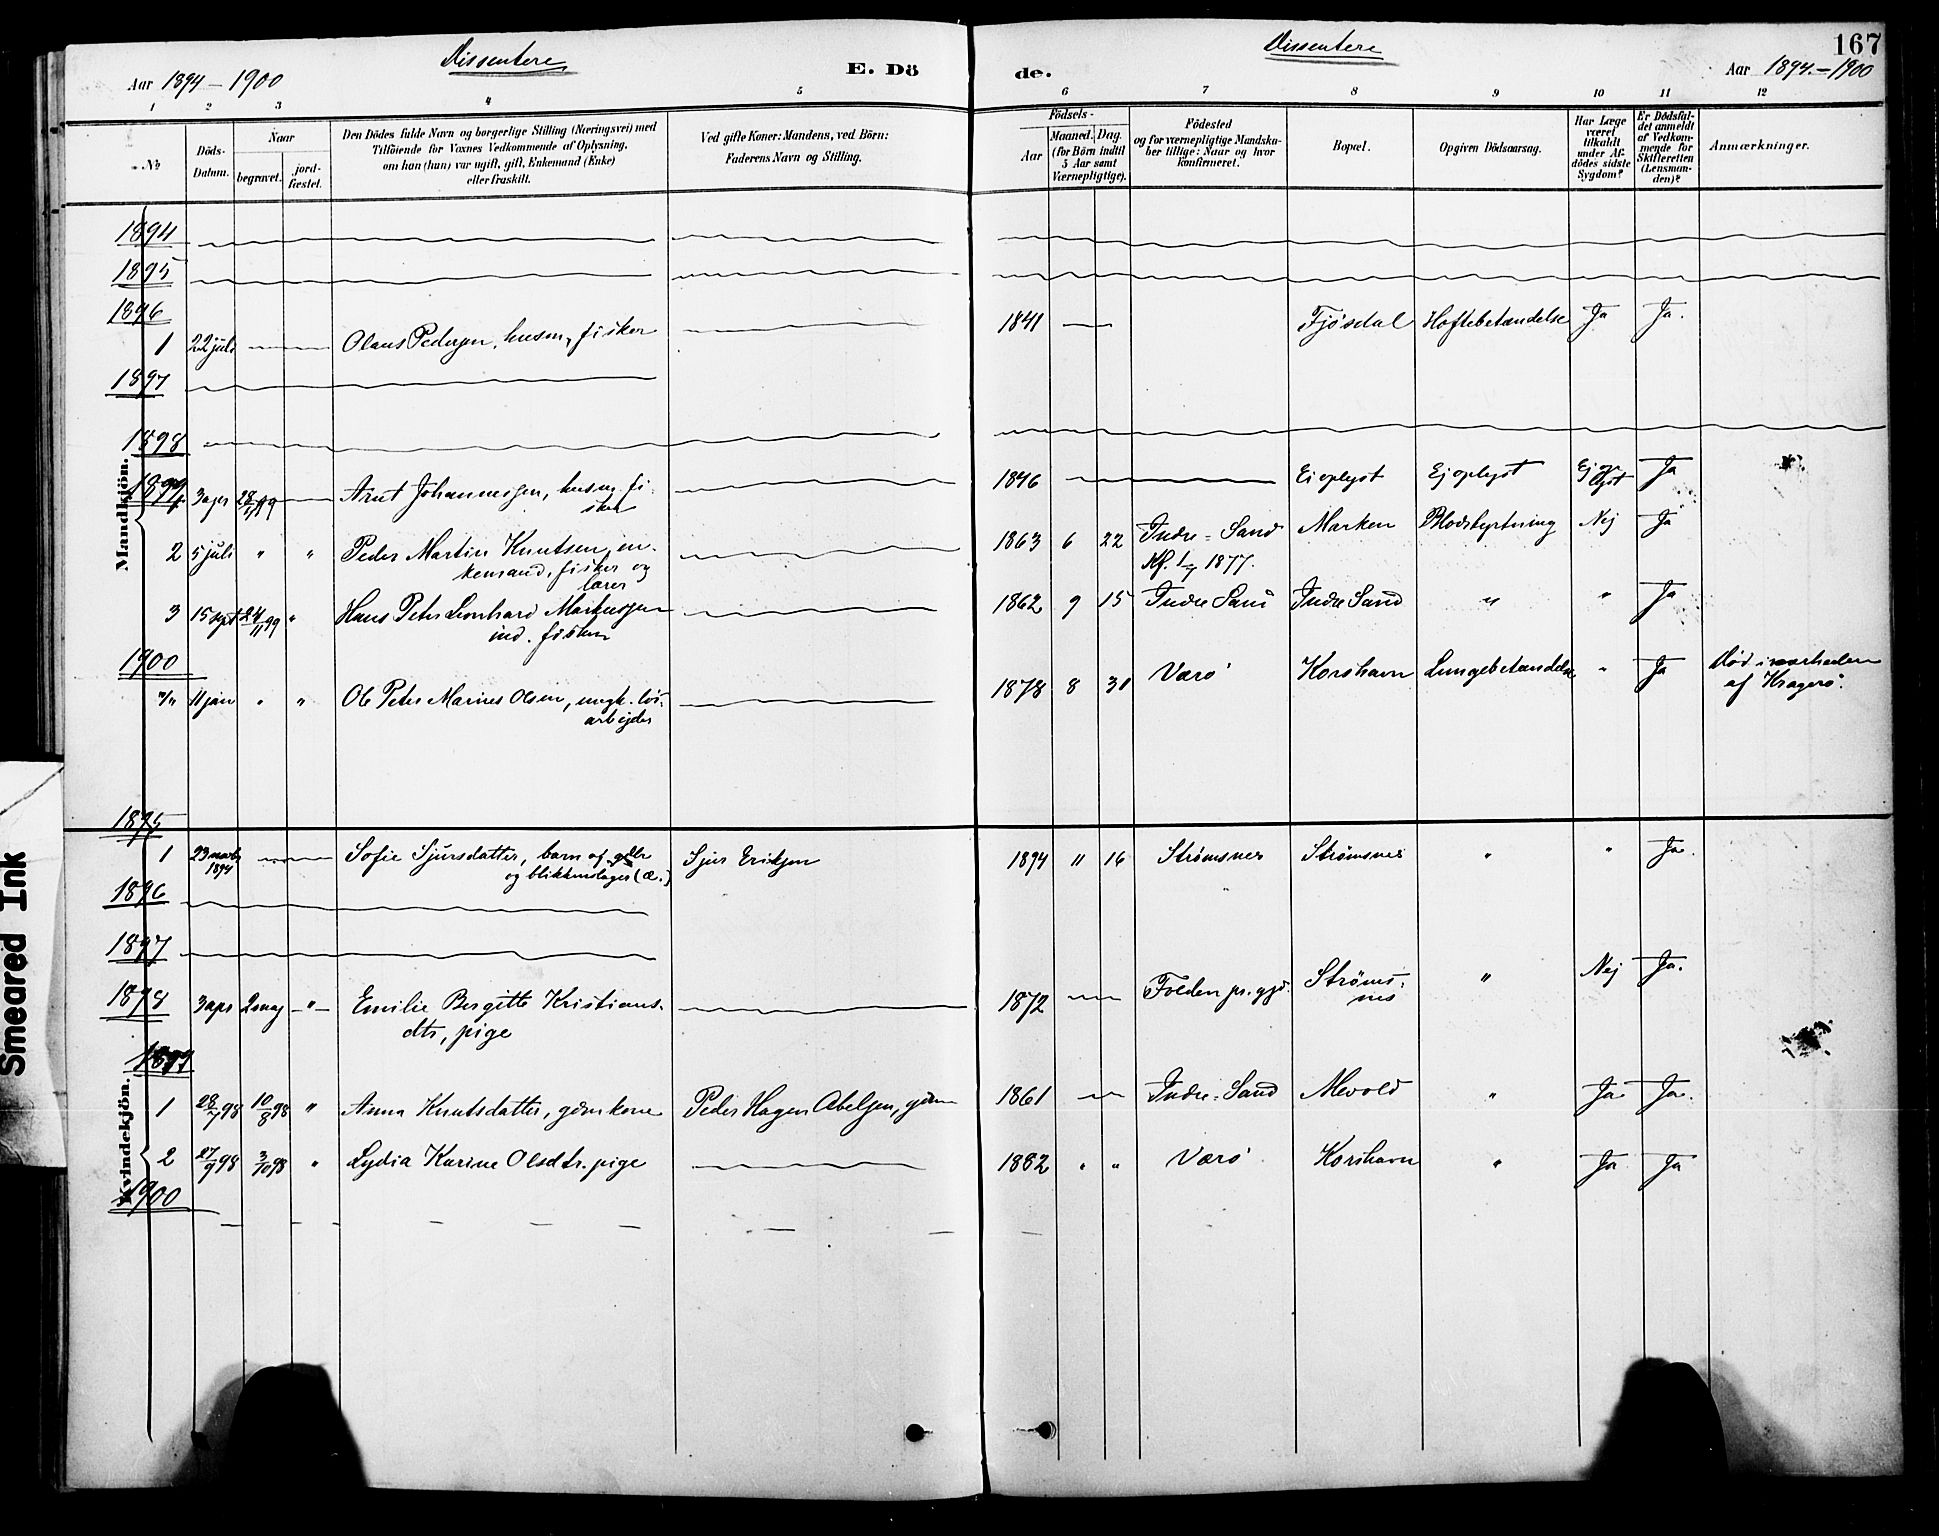 Dissentere
Dissentere
167
Aar 1894-1900
E. Dö
de.
Aar 1894.-1900
1 2 3 4 5 6 7 8 9 10 11 12
No
Döds-
Datum.
Naar
begravet.
jord-
fæstet.
Den Dödes fulde Navn og borgerlige Stilling (Næringsvei) med
Tilföiende for Voxnes Vedkommende af Oplysning,
om han (hun) var ugift, gift, Enkemand (Enke)
eller fraskilt.
Ved gifte Koner: Mandens, ved Börn:
Faderens Navn og Stilling.
Födsels-
Aar
Maaned. Dag.
(for Börn indtil
5 Aar samt
Værnepligtige).
Födested
og for værnepligtige Mandska-
ber tillige: Naar og hvor
konfirmeret.
Bopæl.
Opgiven Dödsaarsag.
Har Læge
været
tilkaldt
under Af-
dödes sidste
Sygdom?
Er Dödsfal-
det anmeldt
af Vedkom-
mende for
Skifteretten
(Lensman-
den)?
Anmærkninger.
Mandkjön.
1894
1895
1896
1 22 juli Olaus Pedersen, husm, fisker 1841 Fjösdal Hoftebetændelse Ja Ja.
1897
1898
1899
3 apr 28/5 99 Arnt Johannessen, husm, fi-
sker 1846 Ei oplyst Ej oplyst Ej opl
yst Ja
2 5 juli " " Peder Martin Knutsen, en-
kemand, fisker og
lærer 1863 6 22 Indre-Sand Marken Blodstyrtning Nej Ja
Kf. 1/7 1877.
3 15 sept 24/11 99 " Hans Peter Leonhard Markussen
ind. fisker 1862 9 15 Indre Sand Indre Sand " " Ja
1900
11 jan " " Ole Peter Marines Olsen, ungk. lös-
arbejder 1878 8 31 Værö Korshavn Lungebetændelse " Ja Död i nærheden
af Kragerö.
Kvindekjön.
1895
1 23 novbr
1894 Sofie Sjursdatter, barn af
og blikkenslager (æ.) Sjur Eriksen 1894 11 16 Strömsnes Strömsnes " " Ja.
1896
1897
1898
3 apr 2 maj " Emilie Bergitte Kristians-
dtr, pige 1872 Folden pr. gjd. Ströms-
nes " Nej Ja.
1899
1 28/7 98 10/8 98 " Anna Knutsdatter, gdmkone Peder Hagen Abelsen, gdm 1861 Indre-Sand Mevold " Ja Ja.
2 27/9 98 3/10 98 " Lydia Karine Olsdtr. pige 1882 " " Værö Korshavn " Ja Ja
1900
Smeared Ink